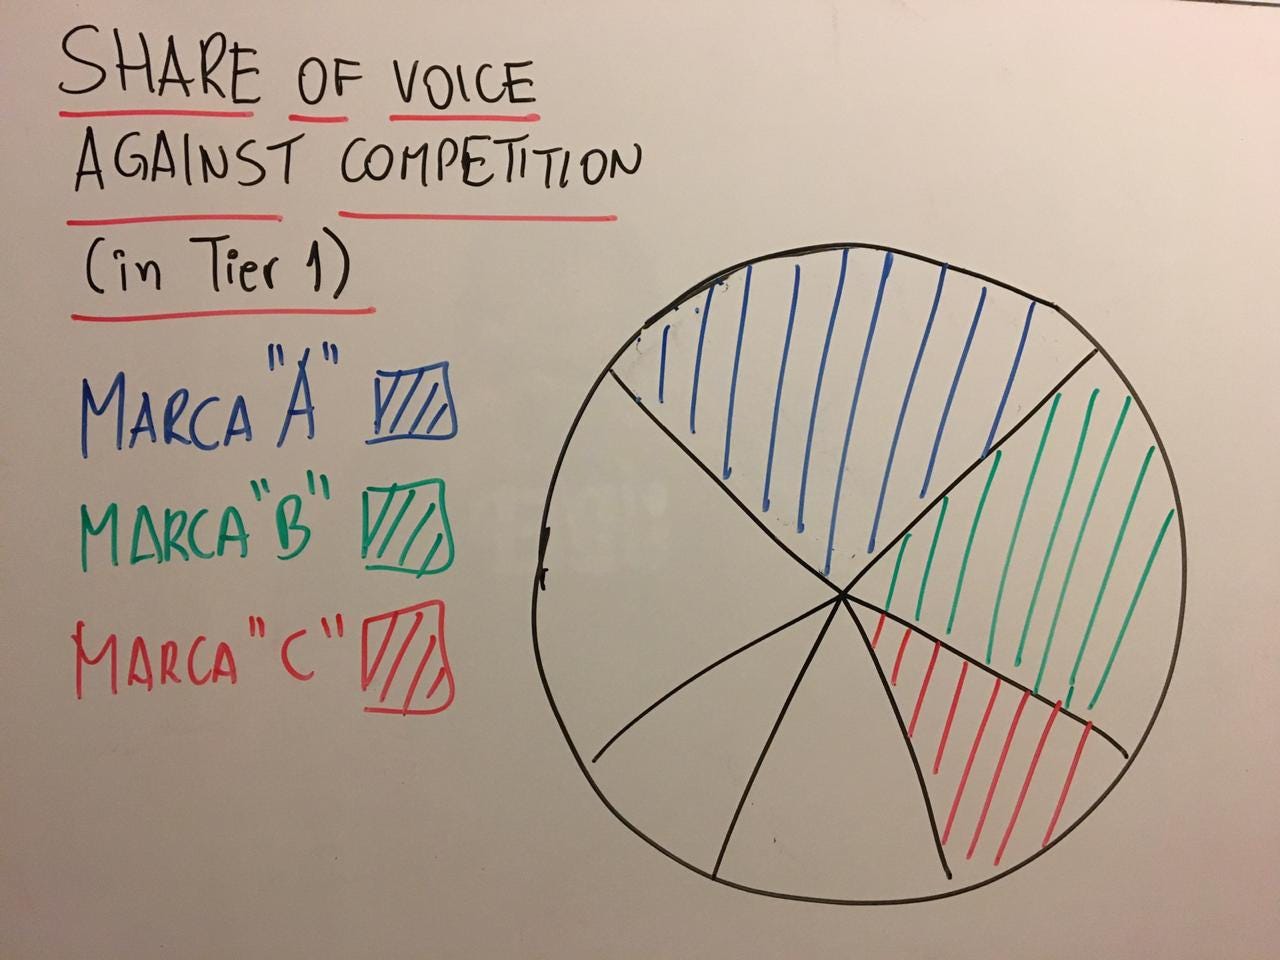 SHARE OF VOICE
AGAINST COMPETITION
(in Tier 1)
MARCA "A"
MARCA "B"
MARCA "C"